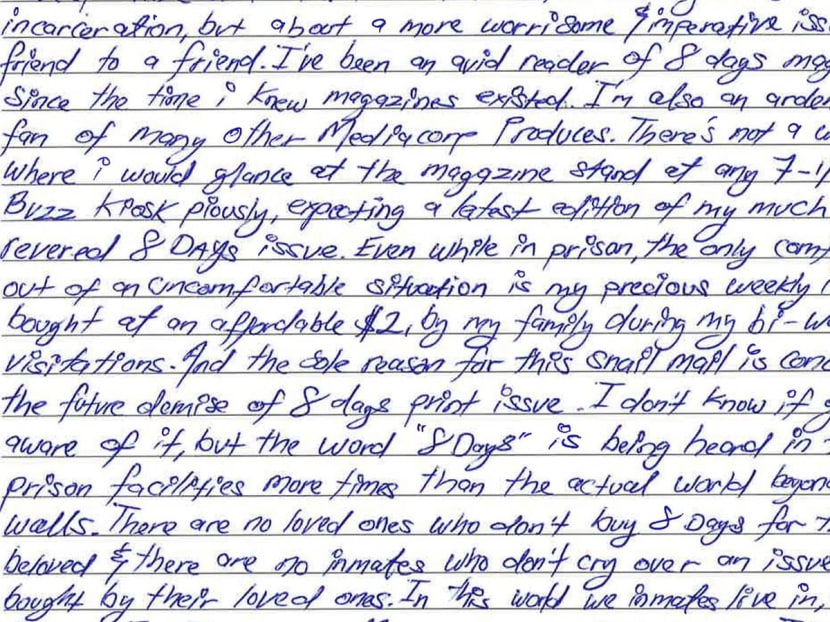 incarceration, but about a more worrisome & imperative iss
friend to a friend. I've been an avid reader of 8 days mag
Since the time i knew magazines existed. I'm also an arden
fan of many other Mediacorp Produces. There's not a w
where i would glance at the magazine stand at any 7-
Buzz kiosk piously, expecting a latest edition of my much
revered 8 DAYS issue. Even while in prison, the only com
out of an uncomfortable situation is my precious weekly
bought at an affordable $2, by my family during my bi-w
visitations. And the sole reason for this snail mail is conc
the future demise of 8 days print issue. I don't know if
aware of it, but the word "8 Days" is being heard in
prison facilities more times than the actual world beyon
walls. There are no loved ones who don't buy 8 Days for
beloved & there are no inmates who don't cry over an issue
bought by their loved ones. In this world we inmates live in,